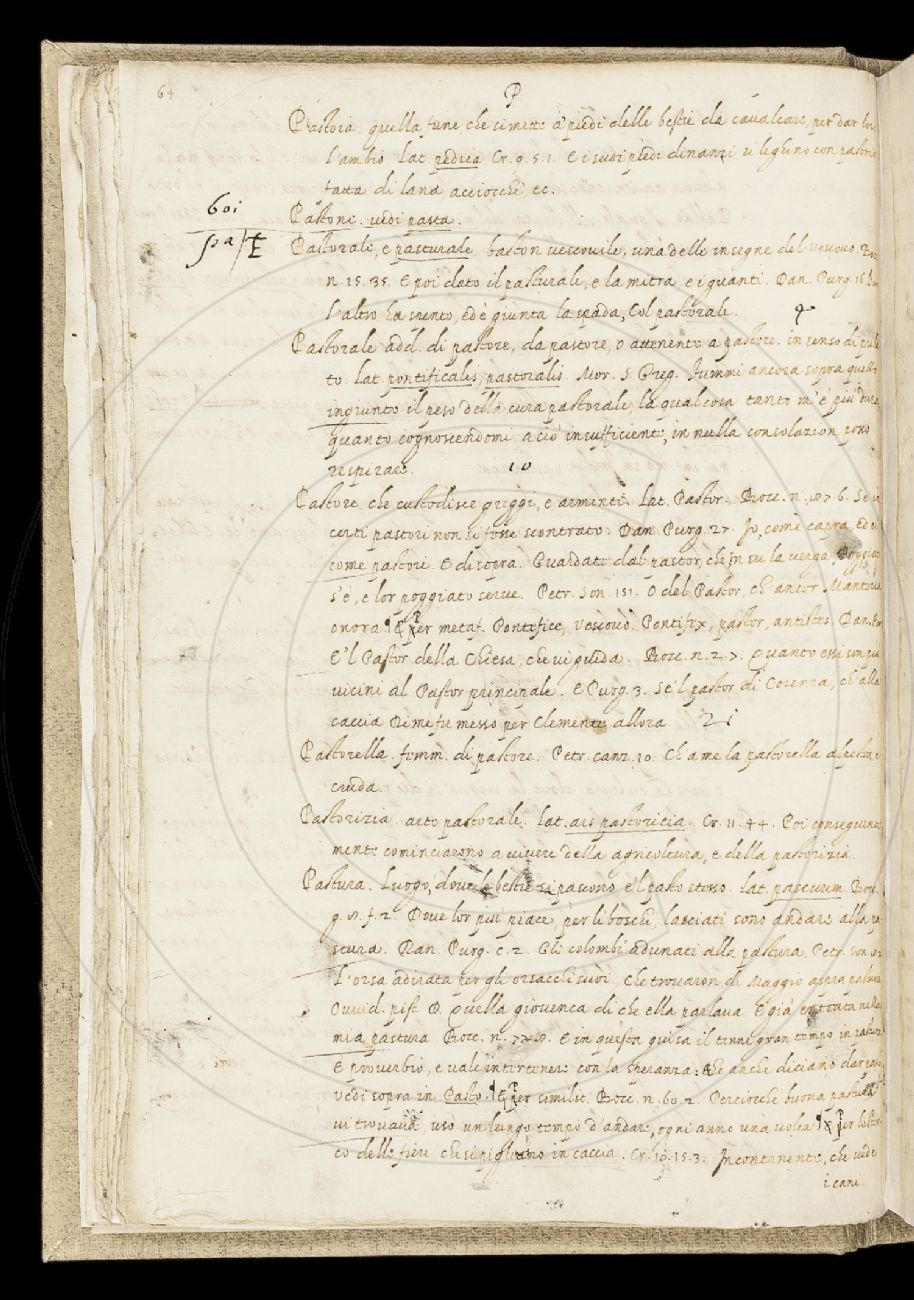 64
P
Pastoia. quella fune che si mette a' piedi delle bestie da cavalcare, per dar loro
l'ambio. Lat. pedica Cr. 9. 5. 1. E i suoi piedi dinanzi si leghino con pastoia
fatta di lana, acciocchè, ec.
601
Pastone. vedi pasta.
pa/E
Pastorale, e pasturale. baston vescovile, una delle insegne del vescovo.
n. 15. 35. E poi dato il pasturale, e la mitra, e i guanti. Dan. Purg. 16.
L'altro ha spento, ed è giunta la spada, Col pastorale.
Pastorale add. di pastore, da pastore, o attenente a pastore. in senso di
to. Lat. pontificalis, pastoralis. Mor. S. Greg. Fummi ancora sopra quello
ingiunto il peso della cura pastorale, la qual cosa tanto m'è più dura
quanto cognoscendomi a ciò insufficiente, in nulla consolazion posso
respirare. 10
Pastore. che custodisce greggi, e armenti. Lat. Pastor. Bocc. n. 6. Se in
certi pastori non si fosse scontrato. Dan. Purg. 27. Io, come capra, ed ei
come pastori. E di sopra. Guardato dal pastor, che, in su la verga Poggiato
s'è, e lor poggiato serve. Petr. Son. 151. O del Pastor, ch' ancor Mantova
onora. ¶ E per metaf. Pontefice, vescovo. Pontifex, pastor, antistes. Dan.
E 'l Pastor della Chiesa, che vi guida. Bocc. n. 2. 7. Quanto essi son più
vicini al Pastor principale. E Purg. 3. Se 'l pastor di Cosenza, ch' alla
caccia Di me fu messo per Clemente allora. 21
Pastorella. femm. di pastore. Petr. canz. 10. Ch' a me la pastorella alpestra, e
cruda.
Pastorizia. arte pastorale. Lat. ars pastoricia. Cr. 11. 44. Poi conseguente
mente cominciarono a vivere della agricoltura, e della pastorizia.
Pastura. Luogo, dove le bestie si pascono, e 'l pasto stesso. Lat. pascuum. Bocc.
g. f. 2. Dove lor più piace, per li boschi, lasciati sono andare alla pa
stura. Dan. Purg. c. 2. Gli colombi adunati alla pastura. Petr. son.
L'orsa adirata per gli orsacchi suoi, Che trovaron di Maggio aspra pastura
Ovvid. pist. D. Quella giovenca di che ella parlava È già entrata nella
mia pastura. Bocc. n. E in questa guisa il tenne gran tempo in pastura
È proverbio, e vale intertener con la speranza: che anche diciamo dar pasto
vedi sopra in Pasto. ¶ E per similit. Bocc. n. 60. 2. Perciocchè buona pastura
vi trovava, usò un lungo tempo d'andare, ogni anno una volta. ¶ E per lo ster
co delle fiere che si pigliano in caccia. Cr. 10. 15. 3. Incontanente, che vede
i cani